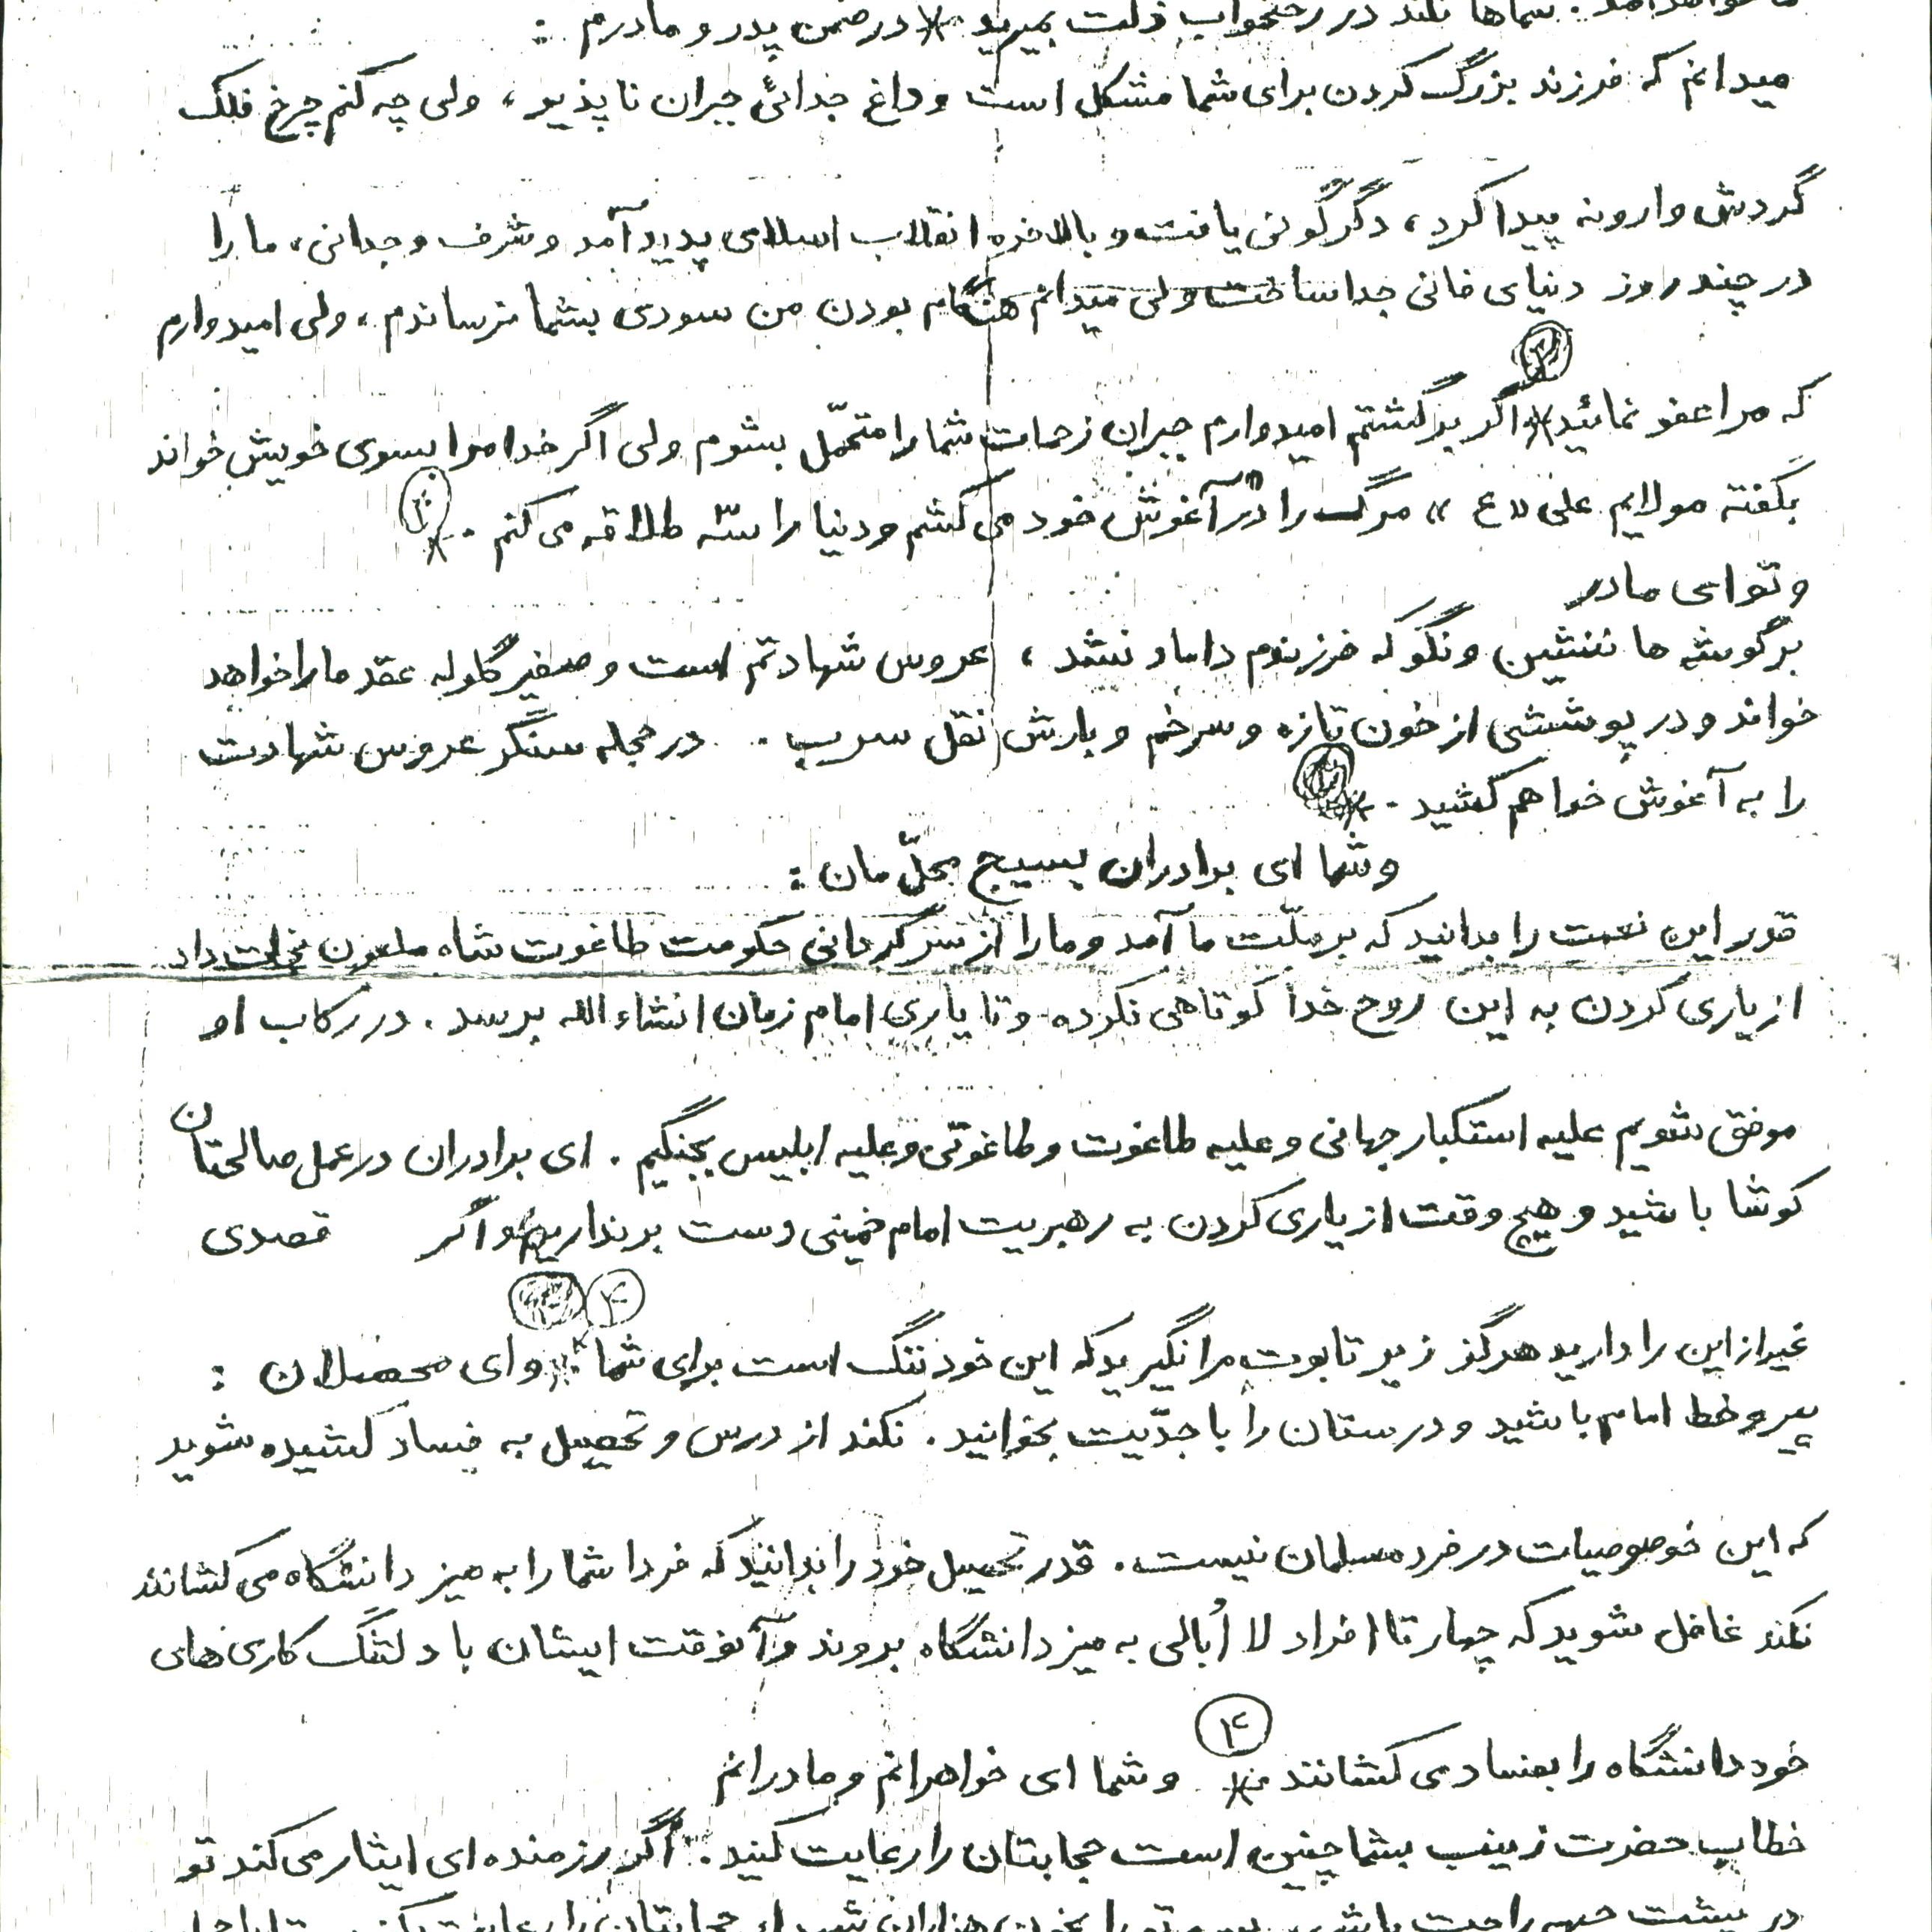 نکند در رختخواب ذلت بمیرید * در ضمن پدر و مادرم :
میدانم که فرزند بزرگ کردن برای شما مشکل است و داغ جدائی جبران ناپذیر ، ولی چه کنم چرخ فلک
گردش وارونه پیدا کرد ، دگرگونی یافت و بالاخره انقلاب اسلامی پدید آمد و شرف وجدانی ، ما را
در چند روز دنیای فانی جدا ساخت ولی میدانم هنگام بودن من سودی بشما نرساندم ، ولی امیدوارم
که مرا عفو نمائید * اگر برگشتم امیدوارم جبران زحمات شما را متحمّل بشوم ولی اگر خدا مرا بسوی خویش خواند
بگفته مولایم علی «ع» مرگ را در آغوش خود می کشم و دنیا را سه طلاقه می کنم . *
و تو ای مادر
بر گوشه ها ننشین و نگو که فرزندم داماد نشد ، عروس شهادتم است و صفیر گلوله عقد ما را خواهد
خواند و در پوششی از خون تازه و سرخم و بارش نقل سرب . در حجله سنگر عروس شهادت
را به آغوش خواهم کشید . *
و شما ای برادران بسیج محلّ مان :
قدر این نعمت را بدانید که بر ملّت ما آمد و ما را از سرگردانی حکومت طاغوت شاه ملعون نجات داد
از یاری کردن به این روح خدا کوتاهی نکرده و تا یاری امام زمان انشاءالله برسد . در رکاب او
موفق شویم علیه استکبار جهانی و علیه طاغوت و طاغوتی و علیه ابلیس بجنگیم . ای برادران در عمل صالحتان
کوشا باشید و هیچ وقت از یاری کردن به رهبریت امام خمینی دست برندارید و اگر قصدی
غیر از این را دارید هرگز زیر تابوت مرا نگیرید که این خود ننگ است برای شما . و ای محصلان :
پیرو خط امام باشید و درستان را با جدّیت بخوانید . نکند از درس و تحصیل به فساد کشیده شوید
که این خصوصیات در فرد مسلمان نیست . قدر تحصیل خود را بدانید که فردا شما را به میز دانشگاه می کشانند
نکند غافل شوید که چهار تا افراد لا اُبالی به میز دانشگاه بروند و آنوقت ایشان با دلتنگ کاری های
۴
خود دانشگاه را بفساد می کشانند * و شما ای خواهرانم و مادرانم
خطاب حضرت زینب بشما چنین است حجابتان را رعایت کنید . اگر رزمنده ای ایثار می کند تو
در پشت جبهه راحت